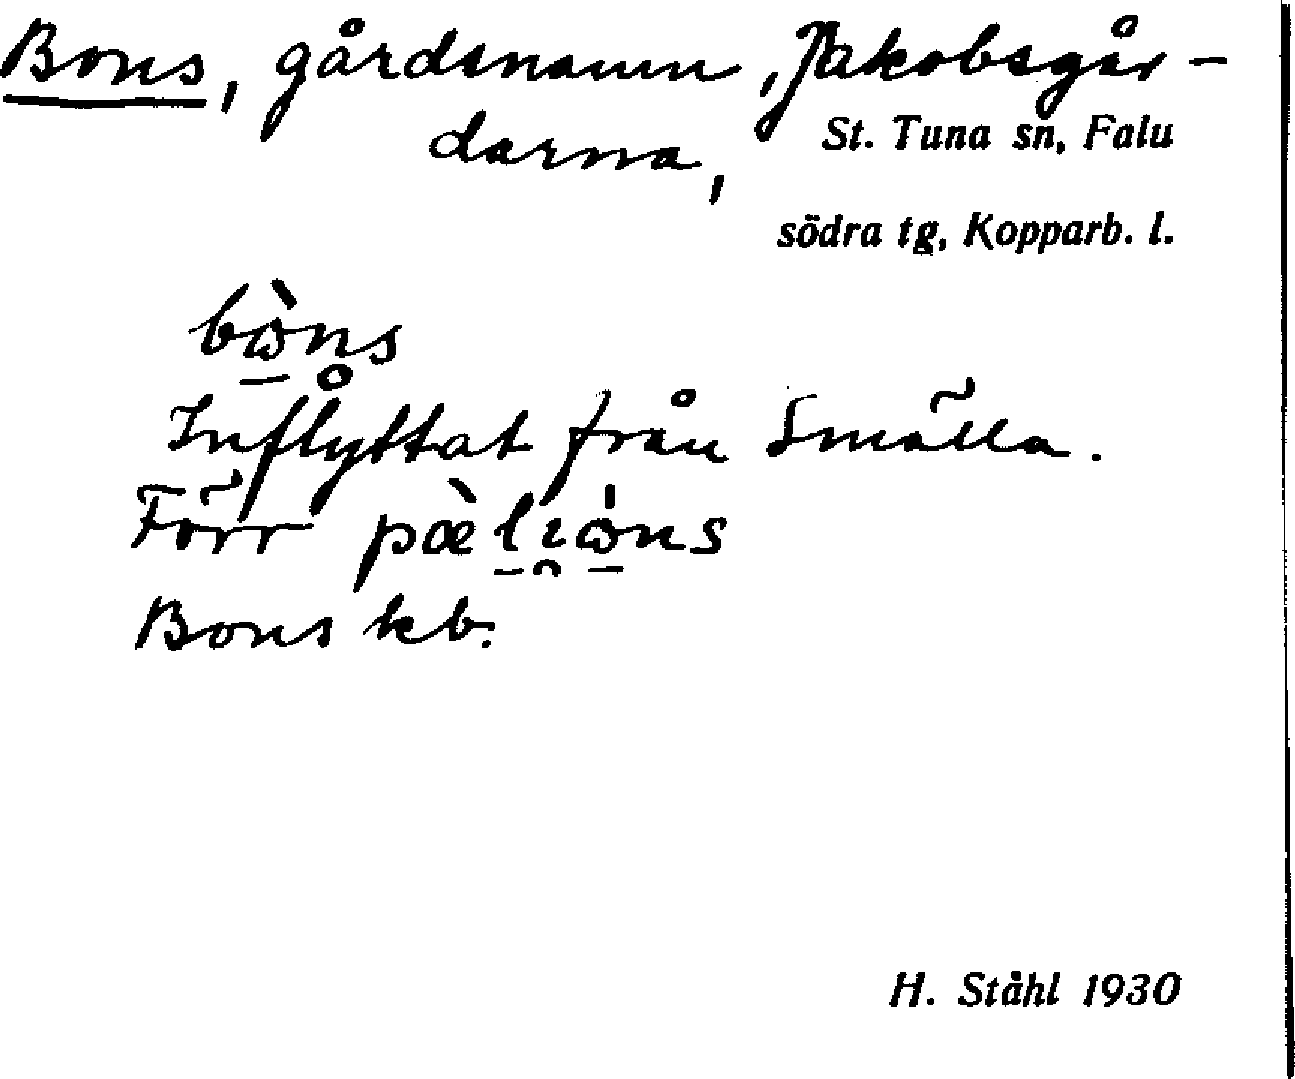 Bons, gårdsnamn, Jakobsgår-
darna,
St. Tuna sn, Falu
södra tg, Kopparb. l.
bὼns
Inflyttat från Smälla.
Förr
Bons kb.
H. Ståhl 1930